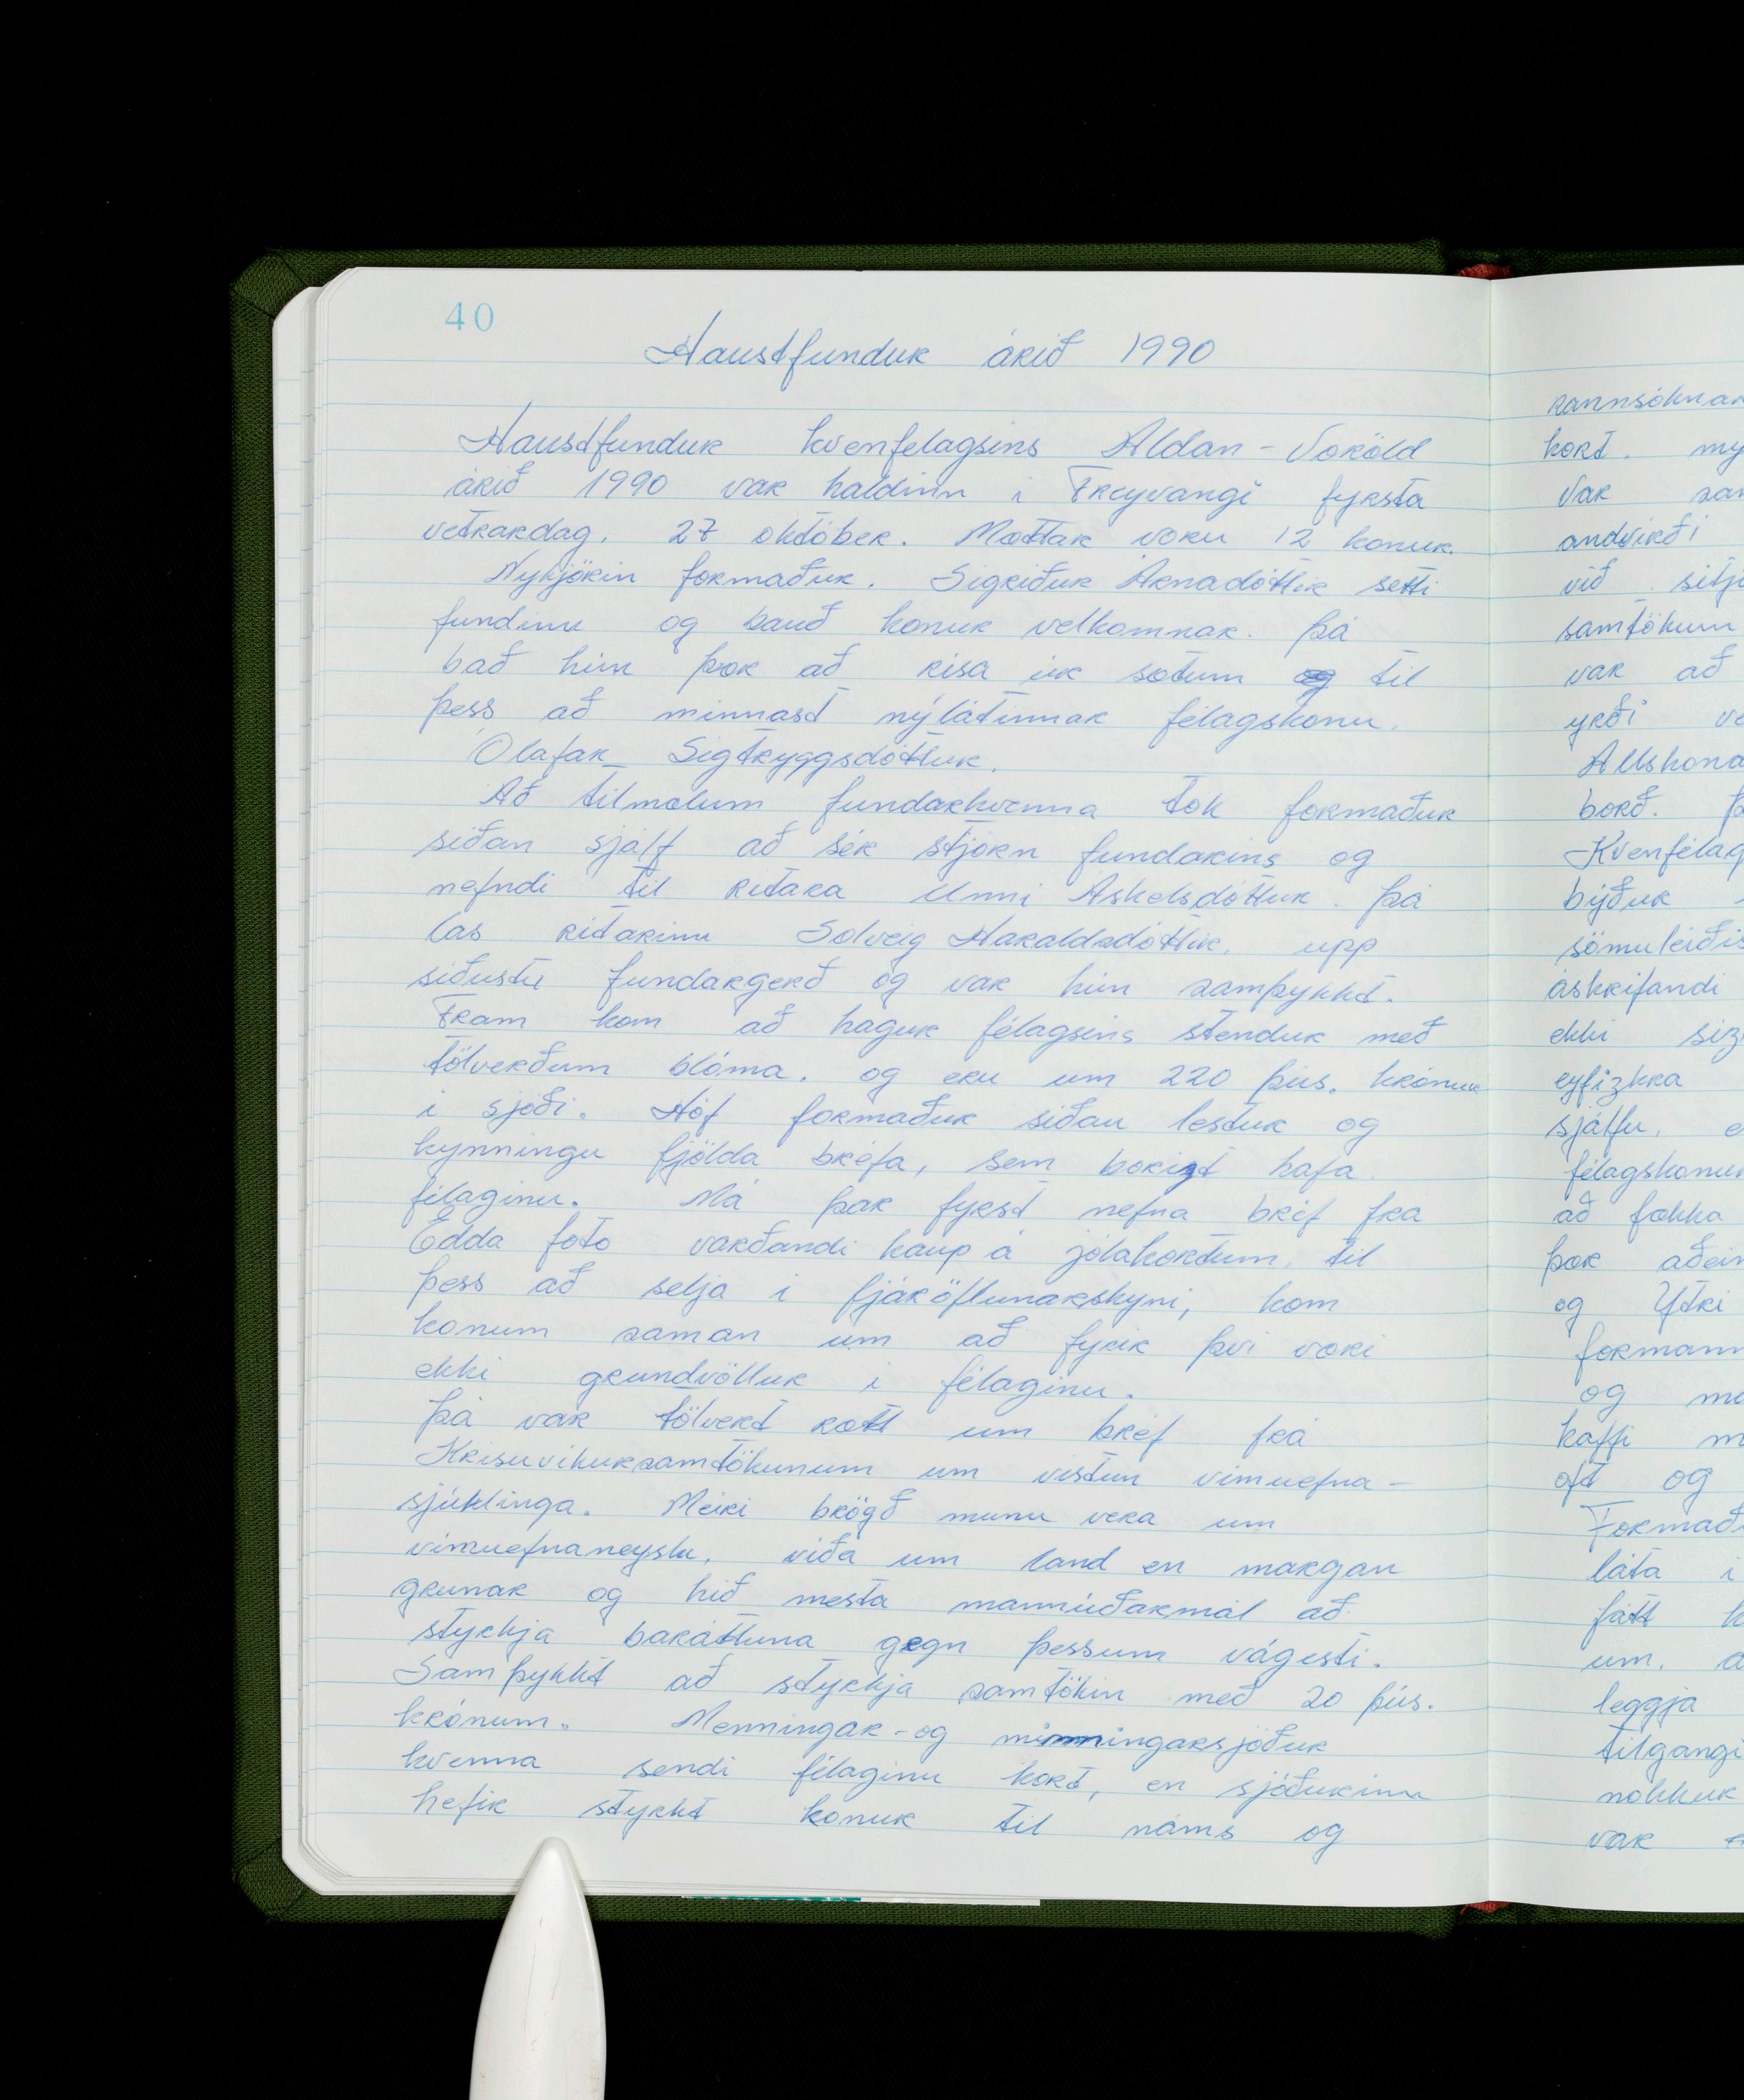 40
Haustfundur árið 1990
Haustfundur kvenfélagsins Aldan - Voröld
árið 1990 var haldinn í Freyvangi fyrsta
vetrardag. 27 október. Mættar voru 12 konur.
Nýkjörin formaður. Sigríður Árnadóttir setti
fundinn og bauð konur velkomnar. Þá
bað hún þær að rísa úr sætum og til
þess að minnast nýlátinnar félagskonu.
Ólafar Sigtryggsdóttur.
Að tilmælum fundarkvenna tók formaður
síðan sjálf að sér stjórn fundarins og
nefndi til ritara Unni Áskelsdóttur. Þá
las ritarinn Sólveig Haraldsdóttir. upp
síðustu fundargerð og var hún samþykkt.
Fram kom að hagur félagsins stendur með
tölverðum blóma. og eru um 220 þús. krónur
í sjóði. Hóf formaður síðan lestur og
kynningu fjölda bréfa, sem borist hafa
félaginu. Má þar fyrst nefna bréf frá
Edda foto varðandi kaup á jólakortum, til
þess að selja í fjáröflunarskyni, kom
konum saman um að fyrir því væri
ekki grundvöllur í félaginu.
Þá var tölvert rætt um bréf frá
Krísuvíkursamtökunum um vistun vímuefna-
sjúklinga. Meiri brögð munu vera um
vímuefnaneyslu, víða um land en margan
grunar og hið mesta mannúðarmál að
styrkja baráttuna gegn þessum vágesti.
Samþykkt að styrkja samtökin með 20 þús.
krónum. Menningar- og minningarsjóður
kvenna sendi félaginu kort, en sjóðurinn
hefir styrkt konur til náms og
kort. my
var
andvirði
við
samtökum
var að
yrði
borð.
býður
áskrifandi
ekki
eyfizkra
sjálfu,
að fækka
þær
og Ytri
og
kaffi
oft og
láta í
fátt
um.
leggja
nokkur
var